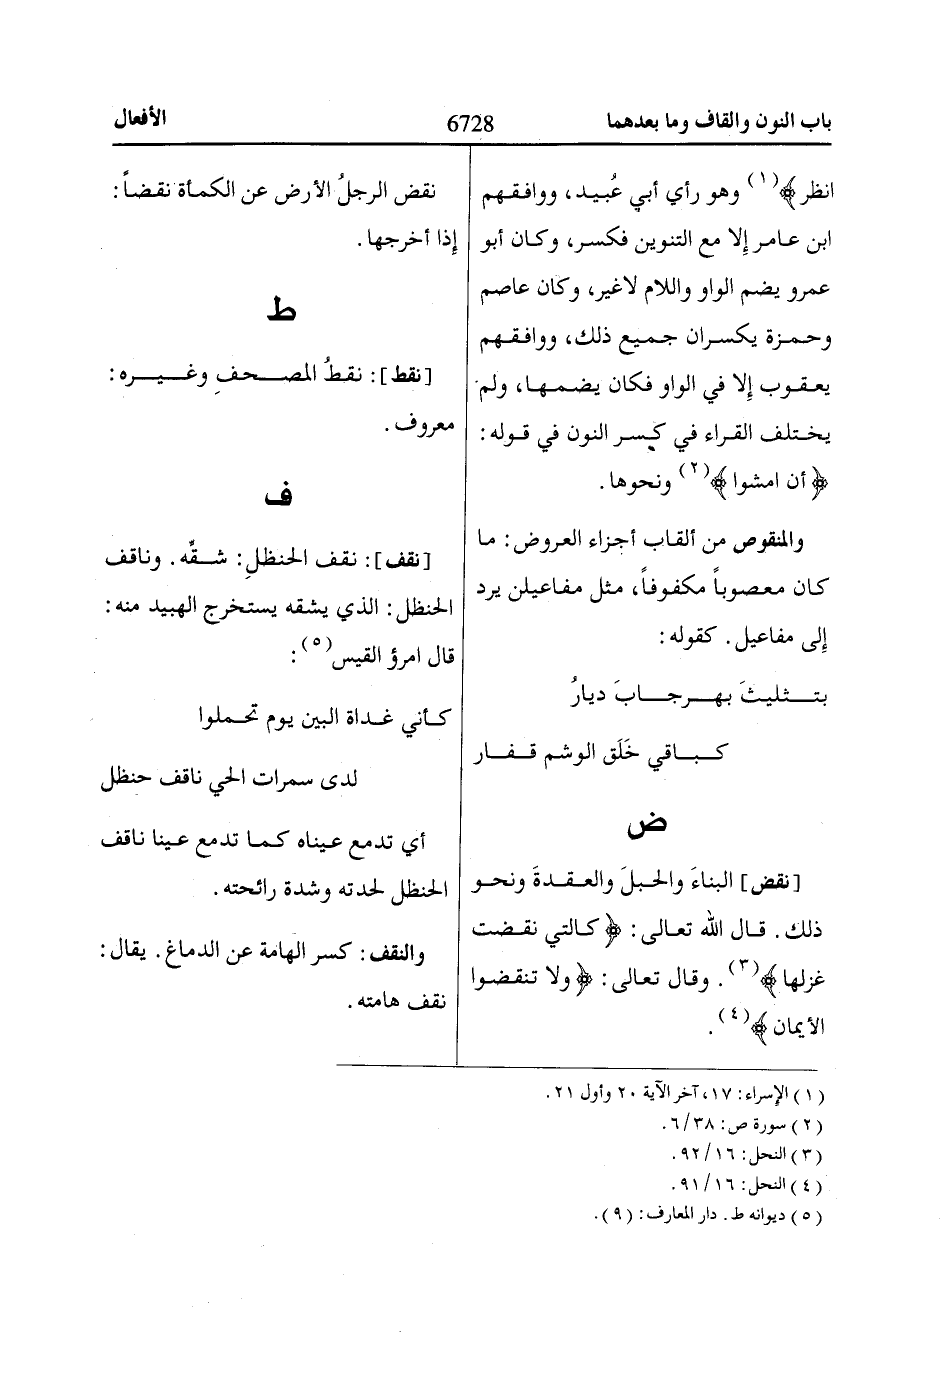 باب النون والقاف وما بعدهما 6728 الأفعال
انظر﴾(١) وهو رأي أبي عُبيد، ووافقهم
ابن عامر إلا مع التنوين فكسر، وكان أبو
عمرو يضم الواو واللام لاغير، وكان عاصم
وحمزة يكسران جميع ذلك، ووافقهم
يعقوب إلا في الواو فكان يضمها، ولم
يختلف القراء في كسر النون في قوله:
﴿أن امشوا﴾(٢) ونحوها.
والمنقوص من ألقاب أجزاء العروض: ما
كان معصوباً مكفوفاً، مثل مفاعيلن يرد
إلى مفاعيل. كقوله:
بتثليثَ بهرجابَ ديارُ
كباقي خَلَق الوشم قفار
ض
[نقض] البناءَ والحبلَ والعقدةَ ونحو
ذلك. قال الله تعالى: ﴿كالتي نقضت
غزلها﴾(٣). وقال تعالى: ﴿ولا تنقضوا
الأيمان﴾(٤).
نقض الرجلُ الأرض عن الكمأة نقضاً:
إذا أخرجها.
ط
[نقط]: نقطُ المصحفِ وغيره:
معروف.
ف
[نقف]: نقف الحنظلِ: شقّه. وناقف
الحنظل: الذي يشقه يستخرج الهبيد منه:
قال امرؤ القيس(٥):
كأني غداة البين يوم تحملوا
لدى سمرات الحي ناقف حنظل
أي تدمع عيناه كما تدمع عينا ناقف
الحنظل لحدته وشدة رائحته.
والنقف: كسر الهامة عن الدماغ. يقال:
نقف هامته.
(١) الإسراء: ١٧، آخر الآية ٢٠ وأول ٢١.
(٢) سورة ص: ٦/٣٨.
(٣) النحل: ٩٢/١٦.
(٤) النحل: ٩١/١٦.
(٥) ديوانه ط. دار المعارف: (٩).